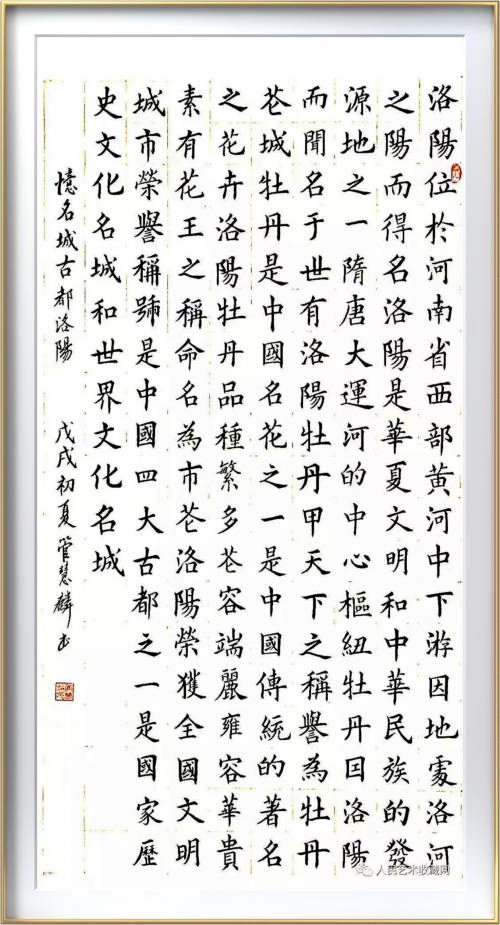 洛陽位於河南省西部黄河中下游因地處洛河
之陽而得名洛陽是華夏文明和中華民族的發
源地之一隋唐大運河的中心樞紐牡丹囙洛陽
而聞名于世有洛陽牡丹甲天下之稱譽為牡丹
芲城牡丹是中國名花之一是中國傳統的著名
之花卉洛陽牡丹品種繁多芲容端麗雍容華貴
素有花王之稱命名為市芲洛陽榮獲全國文明
城市榮譽稱號是中國四大古都之一是國家歷
史文化名城和世界文化名城
憶名城古都洛陽 戊戌初夏管慧麟书
人民艺术收藏网